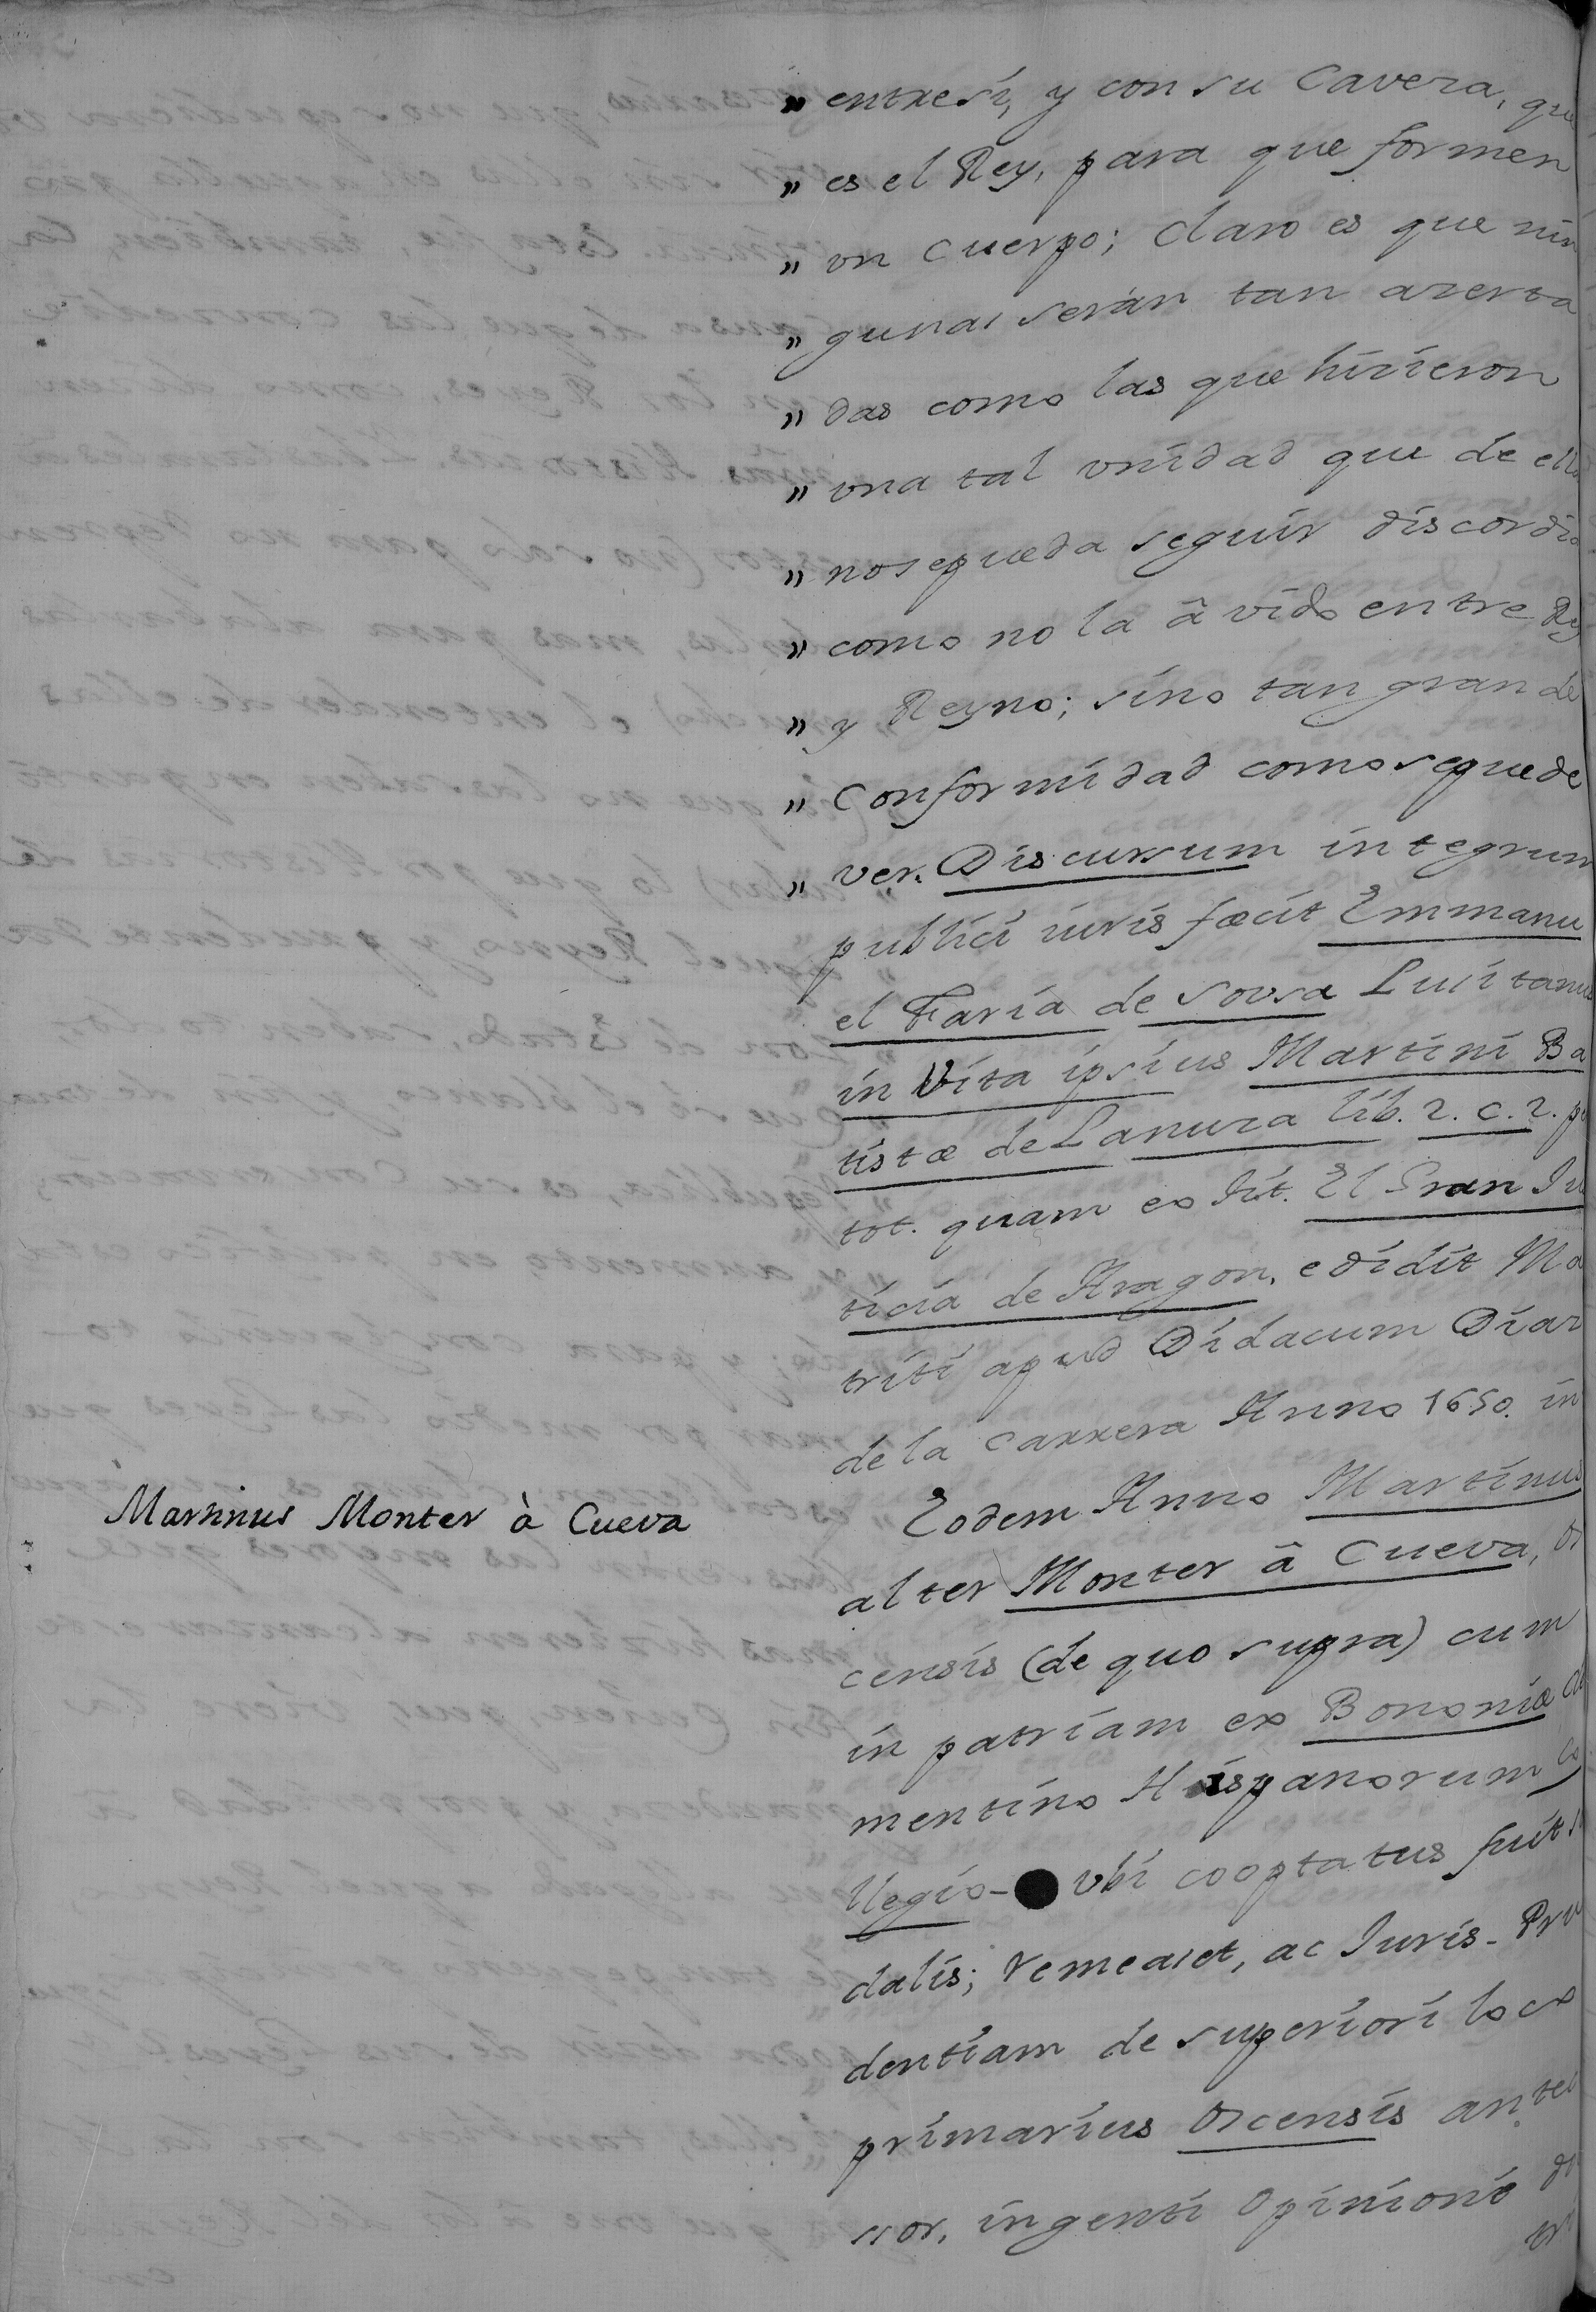 " entresi, y con su Cavera, que
" es el Rey, para que formen
" vn Cuerpo; Claro es que nin
" gunas serán tan arerta
" das como las que hirieron
" vna tal vnidad que de ella
" nosepueda seguir discordia
" como no la â vido entre Rey
" y Reyno; sino tan grande
" Conformidad comosepuede
" ver. Discursum integrum
publici iuris fæcit Emmanu
el Faria de Sousa Lusitanus
in Vita ipsius Martini Ba
tistæ de Lanuza lib. 2. c. 2.
tot. quam ex tit. El Gran Ius
ticia de Aragon, edidit Ma
triti apud Didacum Diaz
de la Carrera Anno 1650. in
Martinus Monter à Cueva
Eodem Anno Martinus
alter Monter â Cueva, Os
censis (de quo supra) cum
in patriam ex Bononiæ Cle
mentino Hispanorum Co
llegio - vbi cooptatus fuit so
dalis; remeasset, ac Iuris-Pru
dentiam de superiori loco
primarius Oscensis antec
ssor, ingenti opinione